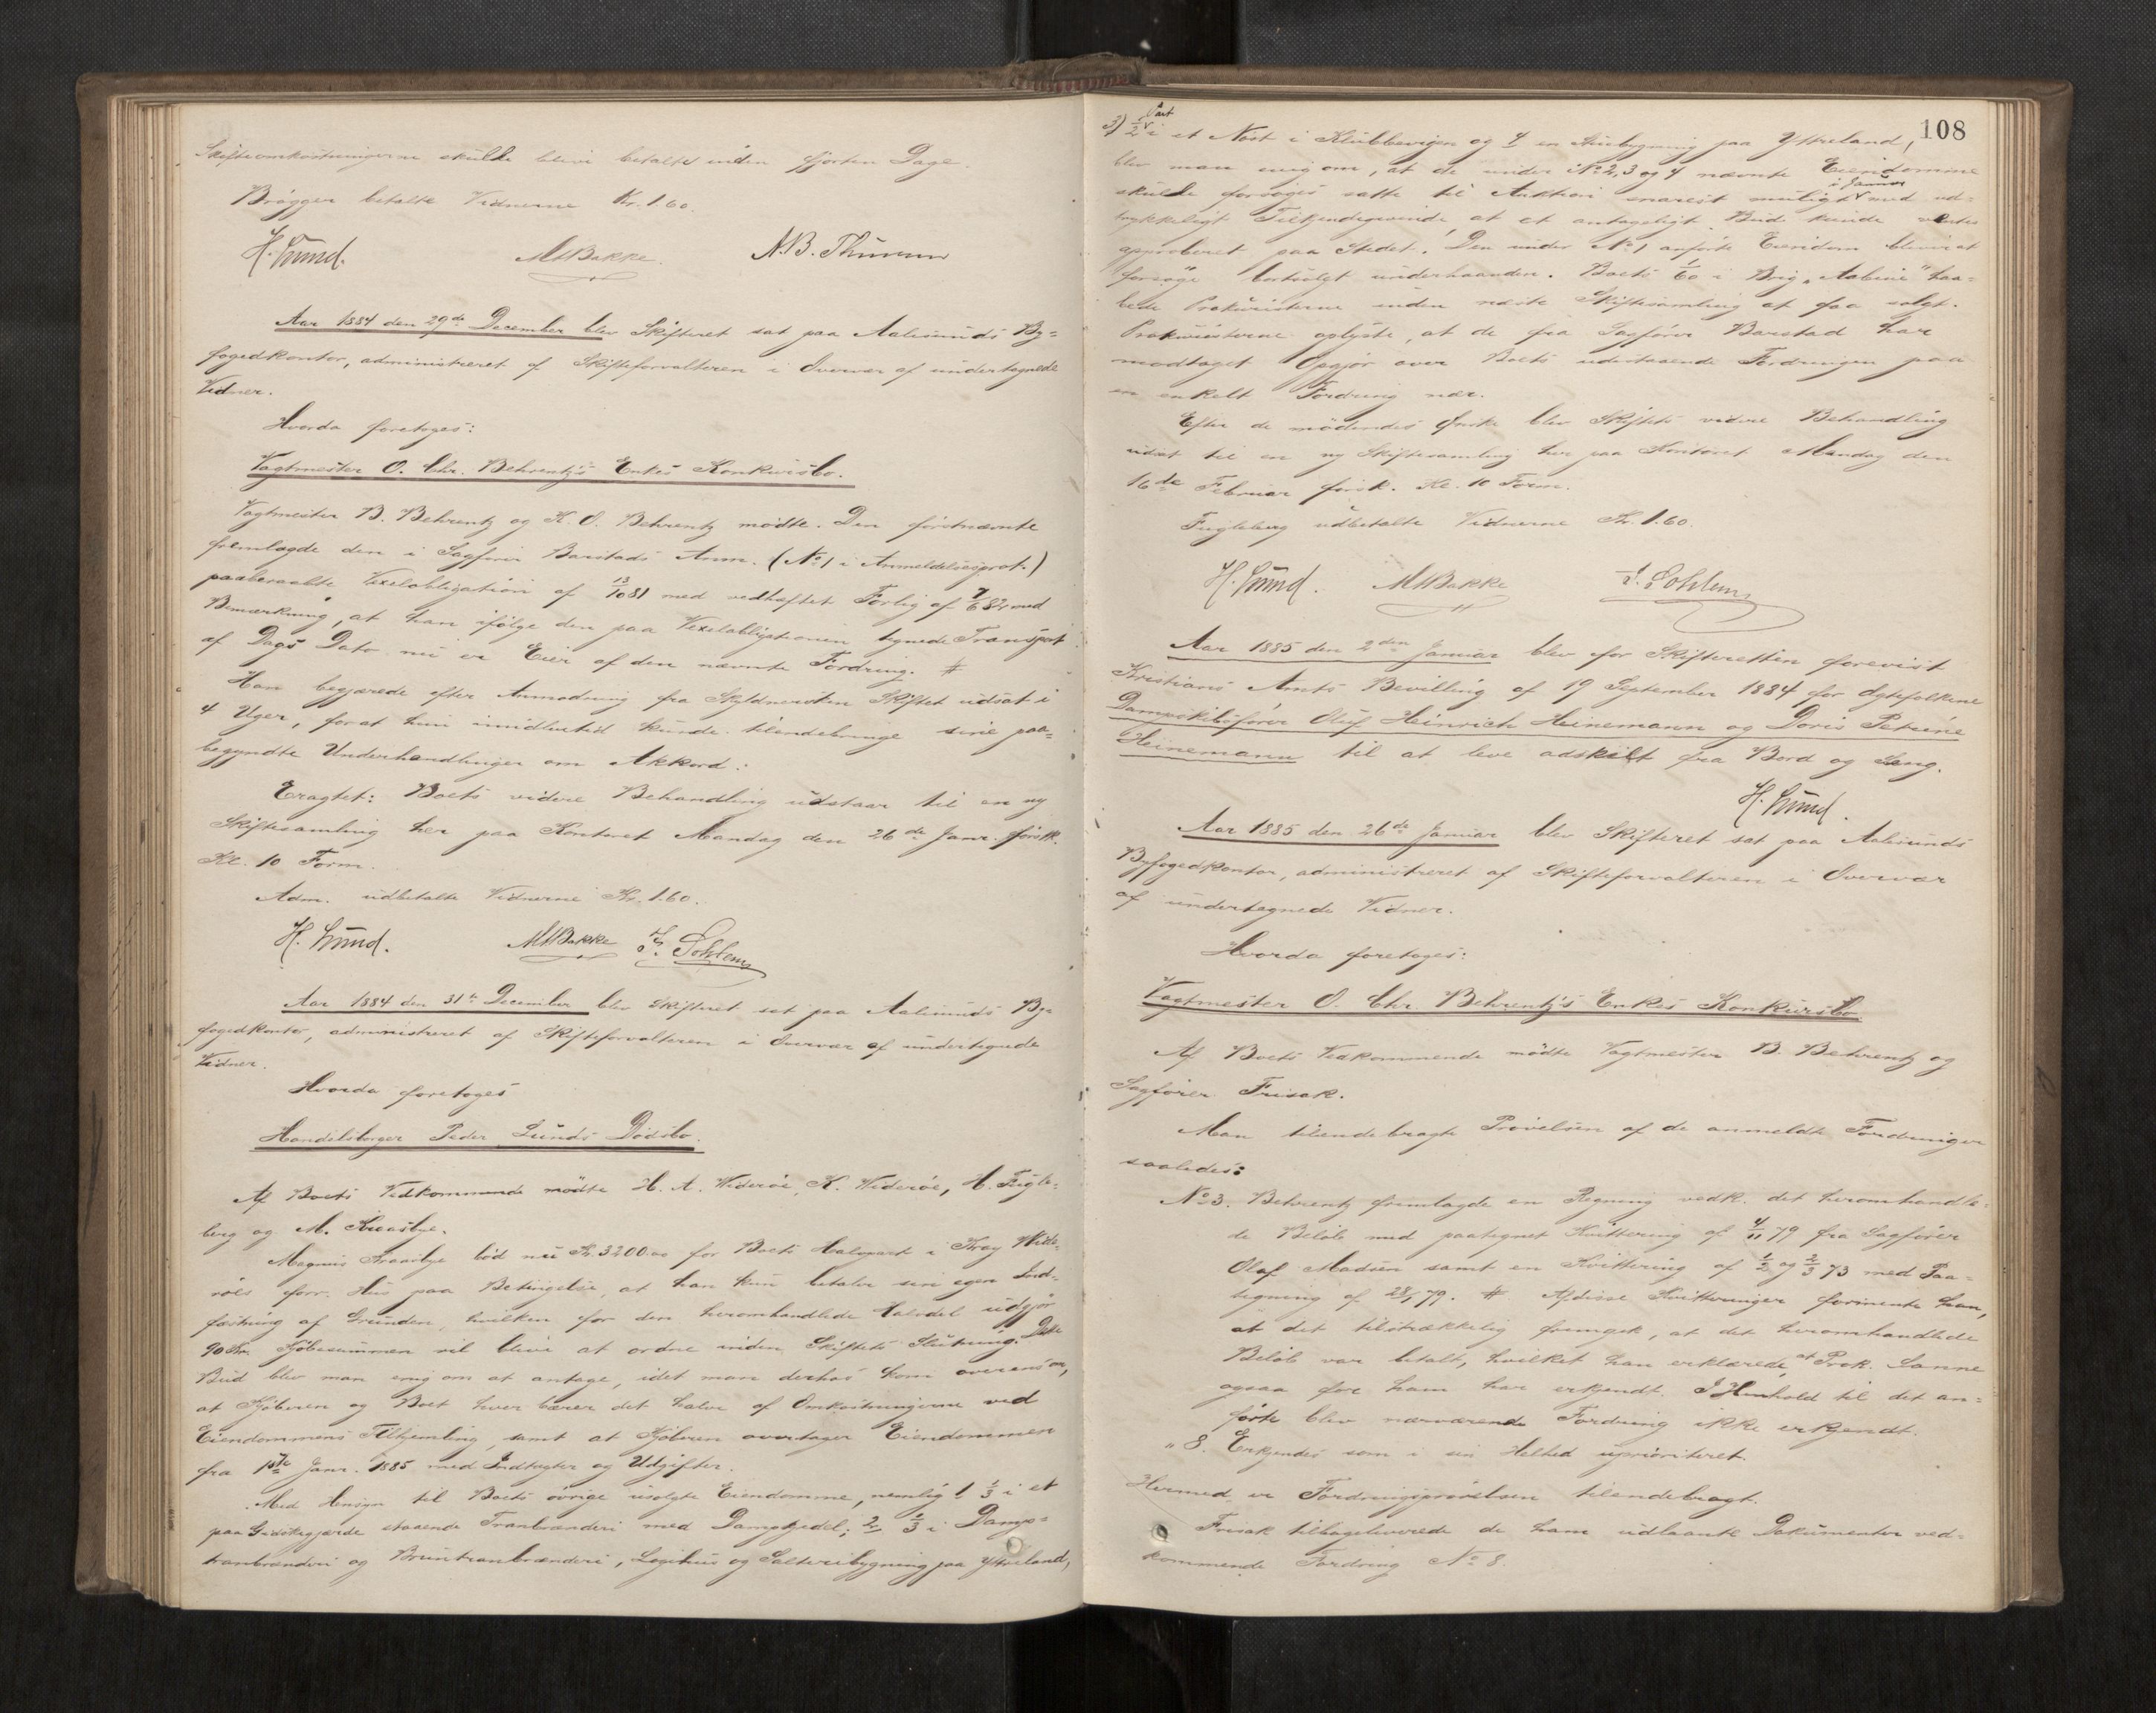 Skifteomkostningerne skulde blive betalte inden fjorten Dage.
Brøgger betalte Vidnerne Kr. 1.60.
H. Lund. MABakke. N.B. Thunem
Aar 1884 den 29de December blev Skifteret sat paa Aalesunds By-
fogedkontor, administreret af Skifteforvalteren i Overvær af undertegnede
Vidner.
Hvorda foretoges:
Vagtmester O. Chr. Behrentz's Enkes Konkursbo.
Vagtmester B. Behrentz og K. O. Behrentz mødte. Den førstnævnte
fremlagde den i Sagfører Barstads Anm. (No 1 i Anmeldelsesprot.)
paaberaabte Vexelobligation af 13/10 81 med vedhæftet Forlig af 7/6 82 med
Bemærkning, at han ifølge den paa Vexelobligationen tegnede Transport
af Dags Dato nu er Eier af den nævnte Fordring. #
Han begjærede efter Anmodning fra Skyldnersken Skiftet udsat i
4 Uger, forat hun imidlertid kunde tilendebringe sine paa-
begyndte Underhandlinger om Akkord:
Eragtet: Boets videre Behandling udstaar til en ny
Skiftesamling her paa Kontoret Mandag den 26de Janr. førstk.
Kl. 10 Form.
Adm. udbetalte Vidnerne Kr. 1.60.
H. Lund. MABakke J. Sohlem
Aar 1884 den 31te December blev Skifteret sat paa Aalesunds By-
fogedkontor, administreret af Skifteforvalteren i Overvær af undertegnede
Vidner.
Hvorda foretoges
Handelsborger Peder Lunds Dødsbo.
Af Boets Vedkommende mødte H. A. Widerøe, K. Widerøe, H. Fugle-
berg og M. Kraasbye.
Magnus Kraasbye bød nu Kr. 3200.00 for Boets Halvpart i Widde-
røes forr. Hus paa Betingelse, at han kun betaler sin egen Ind-
fæstning af Grunden, hvilken for den heromhandlede Halvdel udgjør
90 Kr. Kjøbesummen vil blive at ordne inden Skiftets Slutning. Dette
Bud blev man enig om at antage, idet man derhos kom overens om,
at Kjøberen og Boet hver bærer det halve af Omkostningerne ved
Eiendommens Tilhjemling, samt at Kjøberen overtager Eiendommen
fra 1ste Janr. 1885 med Indtægter og Udgifter.
Med Hensyn til Boets øvrige usolgte Eiendomme, nemlig 1 1/3 i et
paa Gidskegjærde staaende Tranbrænderi med Dampkjedel; 2) 1/3 i Damp-
tranbrænderi og Bruntranbrænderi, Logihus og Salteribygning paa Ytreland,
108
3) 1/2 Part i et Nøst i Klubbevigen og 4 en Stuebygning paa Ytreland,
blev man enig om, at de under No 2, 3 og 4 nævnte Eiendomme
skulde forsøges satte til Auktion snarest muligt i Januar med ud-
trykkeligt Tilkjendegivende at et antageligt Bud kunde ventes
approberet paa Stedet. Den under No 1 anførte Eiendom bliver at
forsøge bortsolgt underhaanden. Boets 1/60 i Brig "Sabine" haa-
bede Prokuristerne inden næste Skiftesamling at faa solgt.
Prokuristerne oplyste, at de fra Sagfører Barstad har
modtaget Opgjør over Boets udestaaende Fordringer paa
en enkelt Fordring nær.
Efter de mødendes Ønske blev Skiftets videre Behandling
udsat til en ny Skiftesamling her paa Kontoret Mandag den
16de Februar førstk. Kl. 10 Form.
Fugleberg udbetalte Vidnerne Kr. 1.60.
H. Lund. MABakke J. Sohlem
Aar 1885 den 2den Januar blev for Skifteretten forevist
Kristians Amts Bevilling af 19 September 1884 for Ægtefolkene
Dampskibsfører Oluf Heinrich Heinemann og Doris Petrine
Heinemann til at leve adskilt fra Bord og Seng.
H. Lund.
Aar 1885 den 26de Januar blev Skifteret sat paa Aalesunds
Byfogedkontor, administreret af Skifteforvalteren i Overvær
af undertegnede Vidner.
Hvorda foretoges:
Vagtmester O. Chr. Behrentz's Enkes Konkursbo
Af Boets Vedkommende mødte Vagtmester B. Behrentz og
Sagfører Frisak.
Man tilendebragte Prøvelsen af de anmeldte Fordringer
saaledes:
No 3. Behrentz fremlagde en Regning vedk. det heromhandle-
de Beløb med paategnet Kvittering af 4/11 79 fra Sagfører
Olaf Madsen samt en Kvittering af 1/2 og 2/3 73 med Paa-
tegning af 28/1 79. #. Af disse Kvitteringer formente han,
at det tilstrækkelig fremgik, at det heromhandlede
Beløb var betalt, hvilket han erklærede, at Prok. Sanne
ogsaa for ham har erkjendt. I Henhold til det an-
førte blev nærværende Fordring ikke erkjendt.
" 8. Erkjendes som i sin Helhed uprioriteret.
Hermed er Fordringsprøvelsen tilendebragt.
Frisak tilbageleverede de ham udlaante Dokumenter ved-
kommende Fordring No 8.